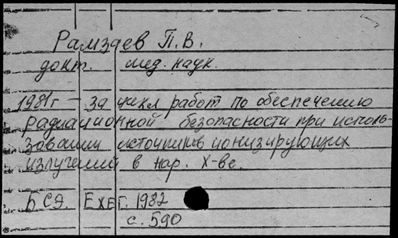 Рамзаев П.В.
докт. мед. наук.
1981г – за цикл работ по обеспечению
радиационной безопасности при исполь-
зовании источников ионизирующих
излучений в нар. х-ве.
Б.СЭ. Ежег. 1982
с. 590